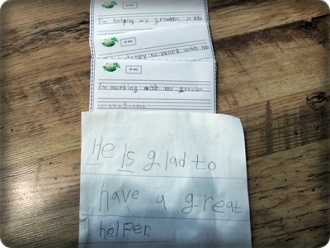 I'm helping my grandpa in the
to work with me
I'm working with my grandpa
He is glad to
have a great
helper.